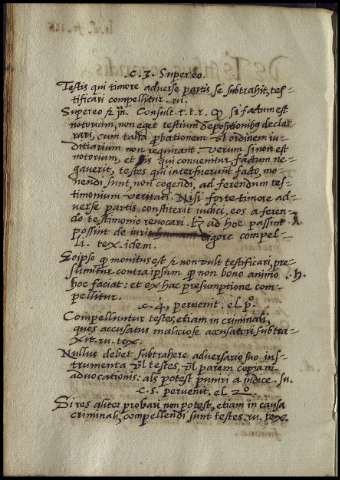 c. 3. Supereo.
Testis qui timore adverse partis se subtrahit, tes-
tificari compellitur.
Supereo Consult. t. r. r. si factum est
notorium, non eget testium depositionibus declar
rari, cum talia probationem vel ordinem iu-
ditiarium non requirant. Verum si non est
notorium, et is qui convenitur, factum ne-
gaverit, testes qui interfuerunt facto, mo-
nendi sunt, non cogendi, ad ferendum tes-
timonium veritati. Nisi forte timore ad-
verse partis constiterit iudici, eos a feren-
do testimonio revocari. ad hoc possint
possint de iuris rigore compel-
li. tex. idem.
Eo ipso monitus est et non vult testificari, pre-
sumitur contra ipsum non bono animo
hoc faciat: et ex hac presumptione com-
pellitur.
c. 4. pervenit. el p.º
Compelluntur testes, etiam in criminali,
ques accusatus maliciose accusatori subtra-
xit. tex.
Nullus debet subtrahere adversario suo ins-
trumenta vel testes, vel parem copiam
advocationis: als potest puniri a iudice. su.
c. 5. pervenit. el 2.º
Si res aliter probari non potest, etiam in causa
criminali, compellendi sunt testes. tex.